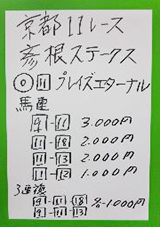 京都11レース
彦根ステークス
◎ 11 プレイズエターナル
馬連
9-11 3.000円
11-18 2.000円
11-13 2.000円
11-12 1.000円
3連複
9-11-18 各1000円
9-11-13